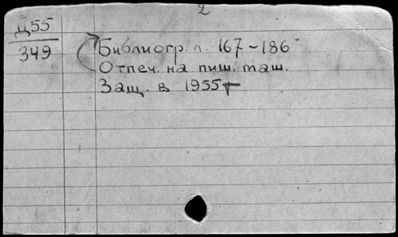 2
Д55
349
Библиогр. л. 167-186
Отпеч. на пиш. маш.
Защ. в 1955 г